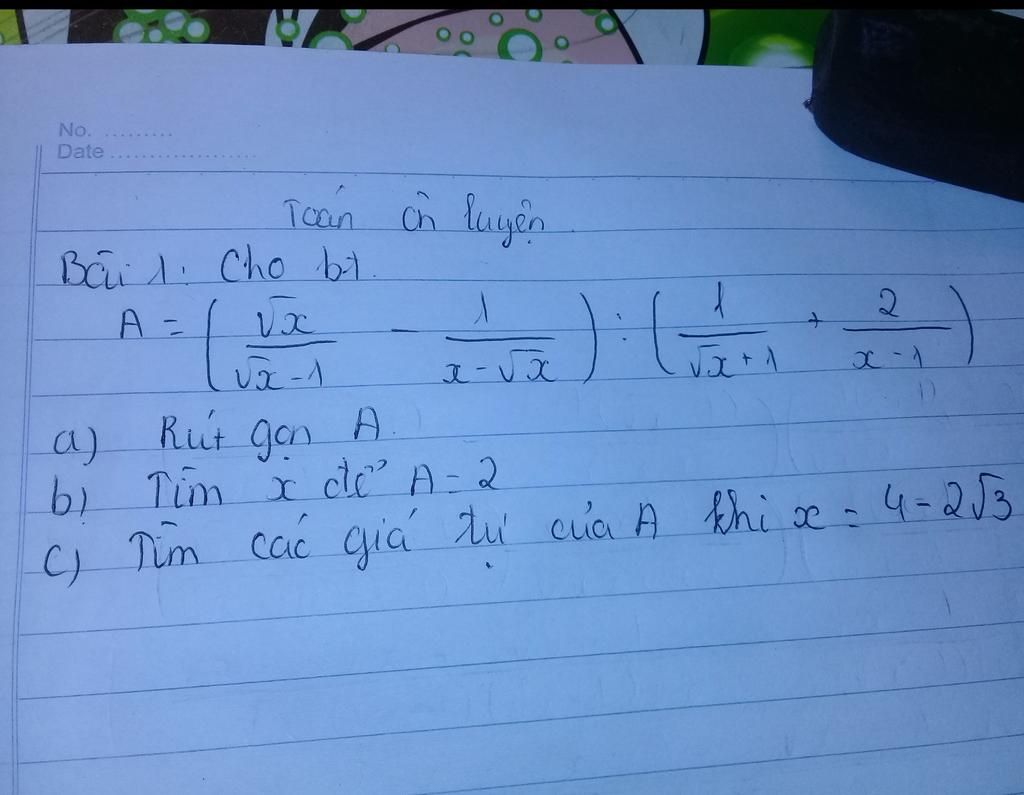 No. .........
Date ...................
Toán ôn luyện.
Bài 1: Cho bt.
A = ( √x / (√x - 1) - 1 / (x - √x) ) : ( 1 / (√x + 1) + 2 / (x - 1) )
a) Rút gọn A.
b) Tìm x để A = 2
c) Tìm các giá trị của A khi x = 4 - 2√3